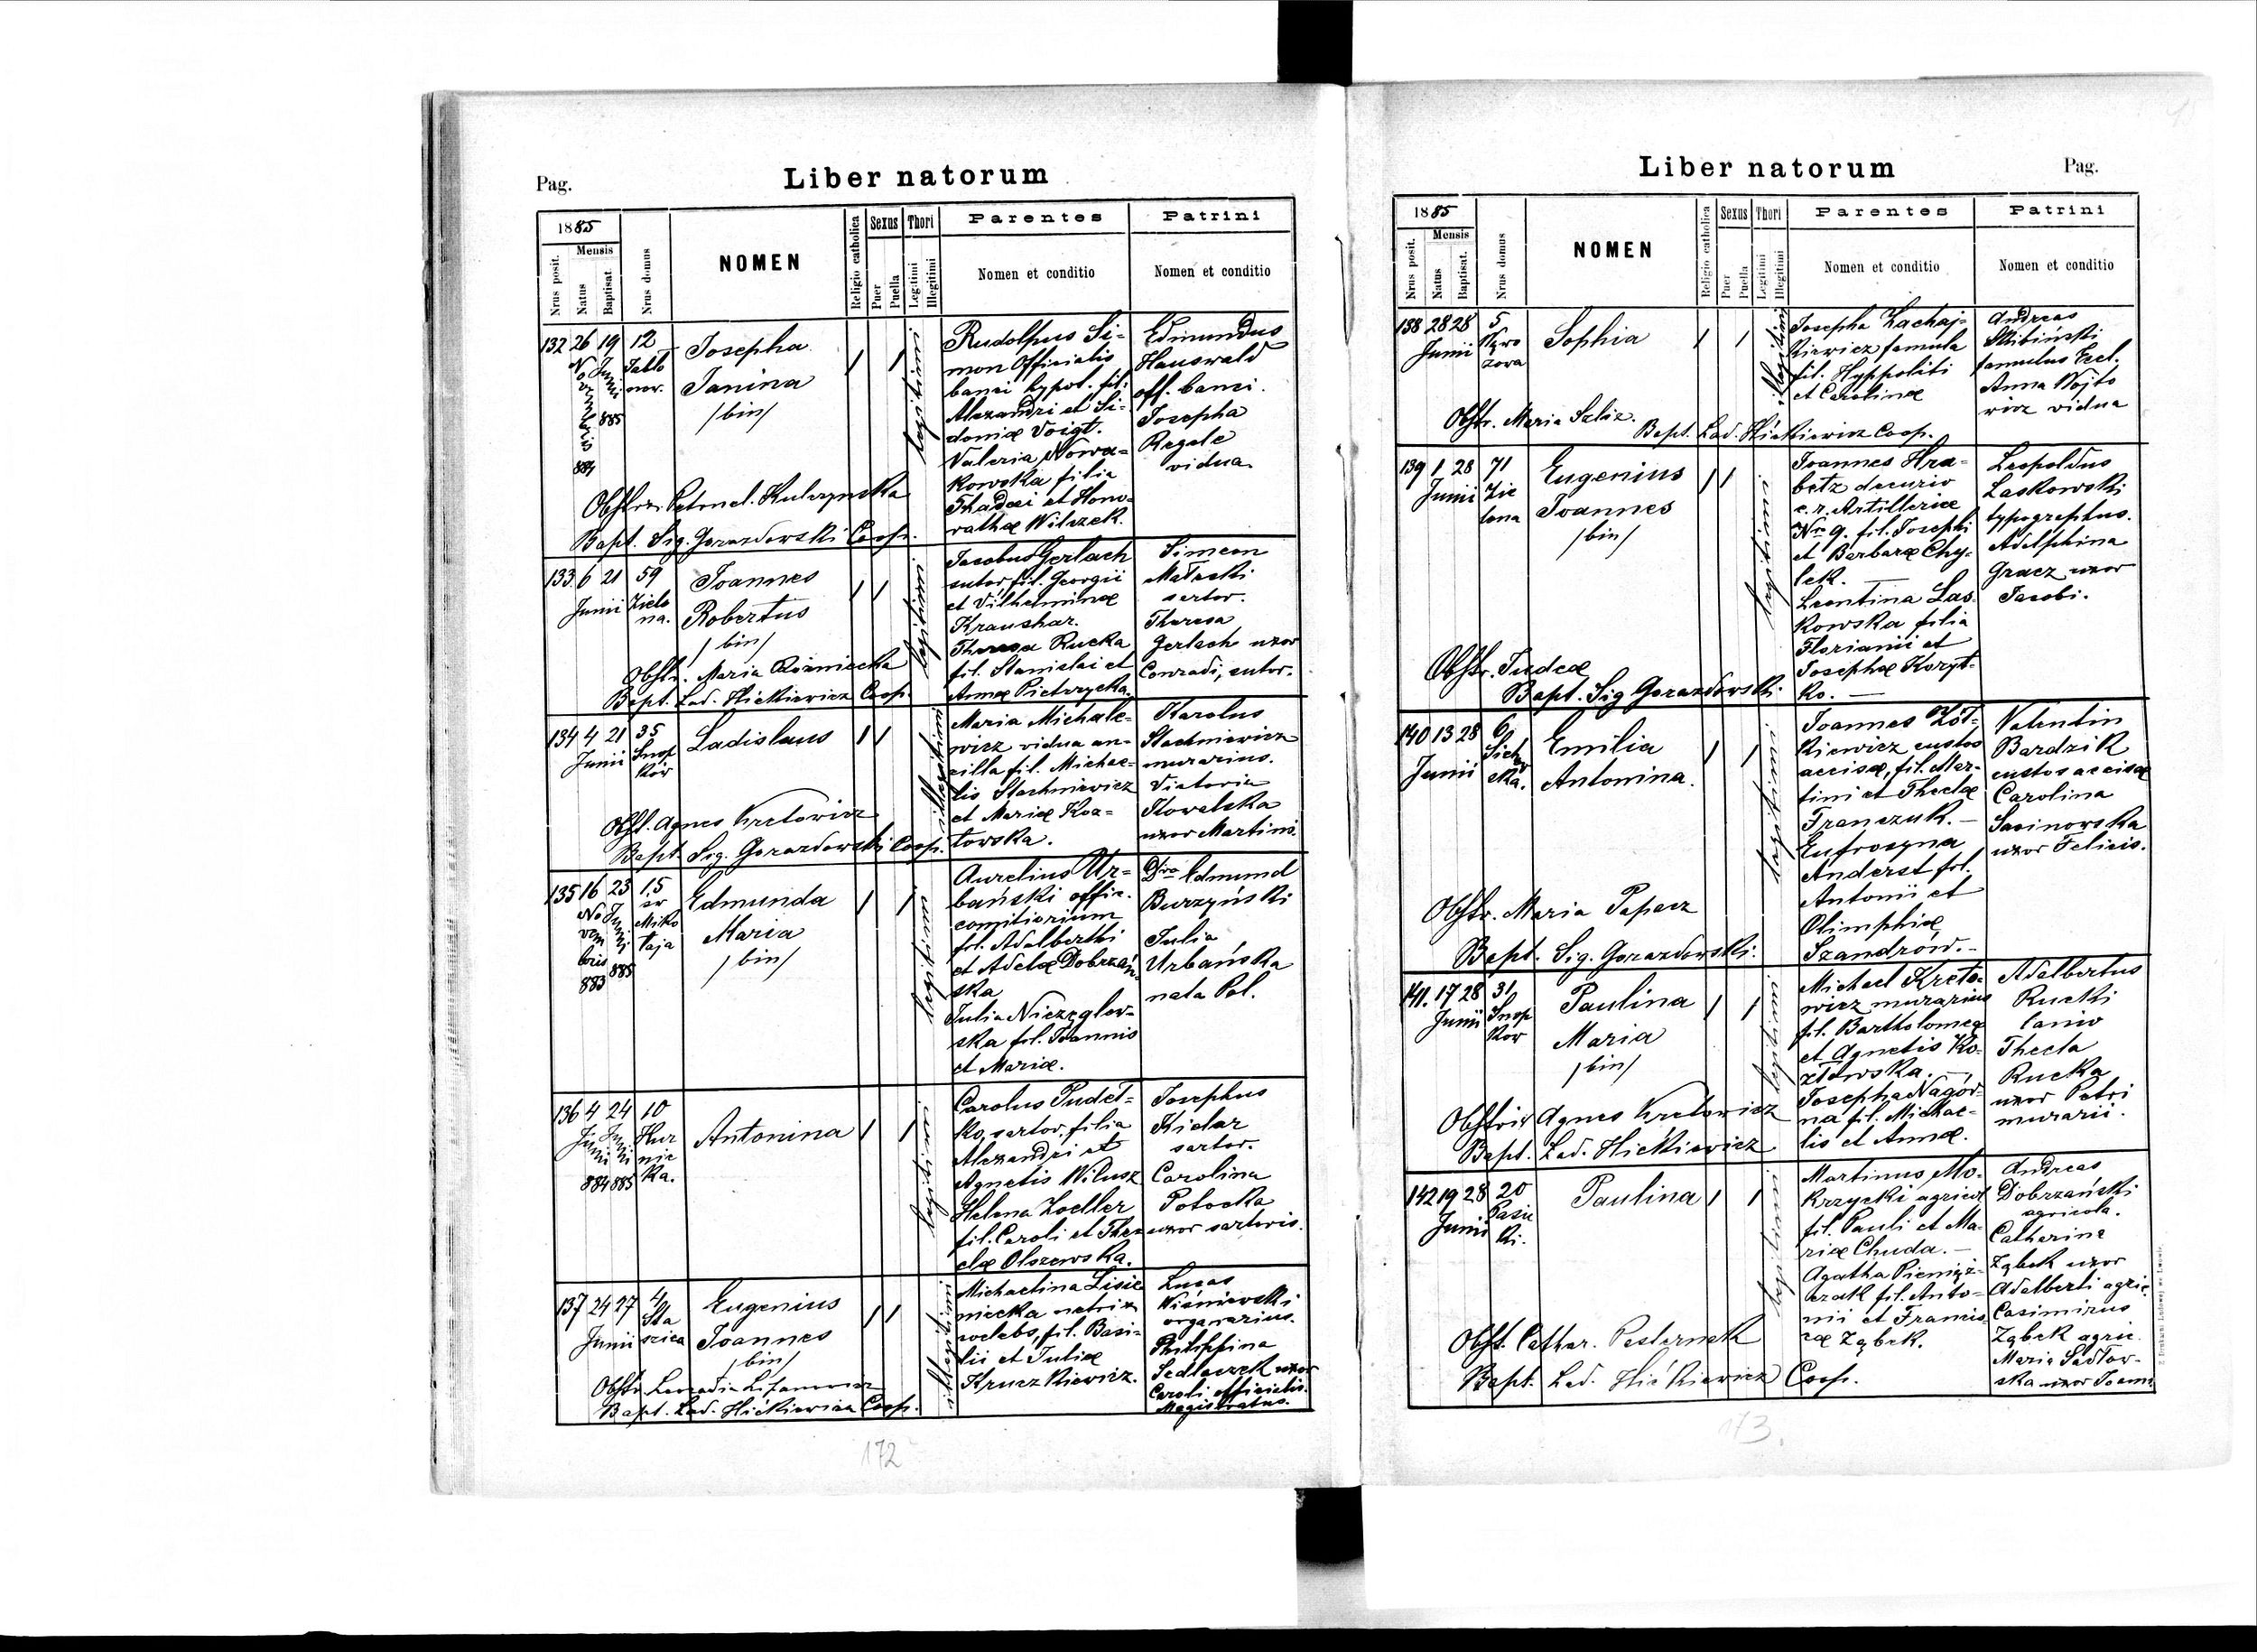 Pag.
Liber natorum
1885
Mensis
Nrus posit.
Natus
Baptisat.
Nrus domus
NOMEN
Religio catholica
Sexus
Puer
Puella
Thori
Legitimi
Illegitimi
Parentes
Nomen et conditio
Patrini
Nomen et conditio
132 26 19 12
Junii
Jabło
nov.
884
885
Josepha
Janina
/bin/
legitimi
Rudolphus Si-
mon Officialis
banci hypot. fil.
Alexandri et Si-
doniæ Voigt.
Valeria Nowa-
kowska filia
Thadæi et Hono-
rathæ Wilczek.
Edmundus
Hauswald
off. banci.
Josepha
Regale
vidua
Obstr. Petronel. Kulczynska
Bapt. Sig. Gorazdowski Coop.
133. 6 21 59
Junii Zielo
na.
Joannes
Robertus
/bin/
legitimi
Jacobus Gerlach
sutor fil. Georgii
et Vilhelminæ
Kraushar.
Theresa Rucka
fil. Stanislai et
Annæ Pietrzycka.
Simeon
Małecki
sartor.
Theresa
Gerlach uxor
Conradi, sutor.
Obstr. Maria Rozniecka
Bapt. Lad. Hićkiewicz Coop.
134 4 21 35
Junii Snop
ków
Ladislaus
illegitimi
Maria Michale-
wicz vidua an-
cilla fil. Michae-
lis Stachniewicz
et Mariæ Koz-
łowska.
Karolus
Stachniewicz
murarius.
Victoria
Kowalska
uxor Martini.
Obst. Agnes Kretowicz
Bapt. Sig. Gorazdowski Coop.
135 16 23 15
No
vem
bris
883
885
Miko
łaja
Edmunda
Maria
/bin/
legitimi
Aurelius Ur-
bański offic.
comitiorium
fil. Adalberthi
et Adelæ Dobrzań-
ska
Julia Niezęglow-
ska fil. Joannis
et Mariæ.
Edmund
Burzyński
Julia
Urbańska
nata Pol.
136 4 24 10
884 885
Hur
nic
ka.
Antonina
legitimi
Carolus Pudeł-
ko, sartor, filia
Alexandri et
Agnetis Wilusz
Helena Zoeller
fil. Caroli et The-
clæ Olszewska.
Josephus
Kielar
sartor.
Carolina
Potocka
uxor sartoris.
137 24 27 4
Junii
Sta
szica
Eugenius
Joannes
/bin/
illegitimi
Michaelina Lisie
niecka
coelebs, fil. Basi-
lii et Juliæ
Kruczkiewicz.
Lucas
Wiśniewski
organarius.
Philippina
Sedlaczek uxor
Caroli officialis
Magistratus.
Bapt. Lad. Hićkiewicz Coop.
172
Liber natorum
Pag.
1885
Mensis
Nrus posit.
Natus
Baptisat.
Nrus domus
NOMEN
Religio catholica
Sexus
Puer
Puella
Thori
Legitimi
Illegitimi
Parentes
Nomen et conditio
Patrini
Nomen et conditio
138 28 28 5
Junii
Sophia
Josepha Zachaj-
kiewicz famula
fil. Hyppoliti
et Carolinæ
Andreas
Skibiński
famulus Eccl.
Anna Wojto
wicz vidua
Obstr. Maria Szlic.
Bapt. Lad. Hićkiewicz Coop.
139 1 28 71
Junii Zie
lona
Eugenius
Joannes
/bin/
legitimi
Joannes Hra-
betz decurio
c. r. Artilleriæ
Nro 9. fil. Josephi
et Barbaræ Chy-
lek.
Leontina Las-
kowska filia
Florianii et
Josephæ Koryt-
ko.
Leopoldus
Laskowski
typographus.
Adelphina
Gracz uxor
Jacobi.
Obstr. Judea
Bapt. Sig Gorazdowski.
140 13 28 6
Junii
Emilia
Antonina.
legitimi
Joannes Żół-
kiewicz custos
accisæ, fil. Mar-
tini et Theclæ
Franczuk.
Eufrosyna
Anderst fil.
Antonii et
Olimphiæ
Szandrów.
Valentin
Bardzik
custos accisæ
Carolina
Sasinowska
uxor Felicis.
Obstr. Maria Papacz
Bapt. Sig. Gorazdowski.
141. 17 28 31
Junii Snop
kow
Paulina
Maria
/bin/
legitimi
Michael Kreto-
wicz murarius
fil. Bartholomeæ
et Agnetis Ko-
złowska.
Josepha Nagór-
na fil. Michae-
lis et Annæ.
Adalbertus
Rucki
lanio
Thecla
Rucka
uxor Petri
murarii.
Obstrix Agnes Kretowicz
Bapt. Lad. Hićkiewicz
142 19 28 20
Junii Pasie
ki.
Paulina
legitimi
Martinus Mo-
krzycki agricol
fil. Pauli et Ma-
riæ Chuda.
Agatha Pieniąż-
czak fil. Anto-
nii et Francis-
cæ Ząbek.
Andreas
Dobrzański
agricola.
Catherina
Ząbek uxor
Adalberti agric.
Casimirus
Ząbek agric.
Maria Sadłow-
ska uxor Joann.
Obst. Cathar. Pesternak
Bapt. Lad. Hićkiewicz Coop.
173.
Z Drukarni Ludowej we Lwowie.